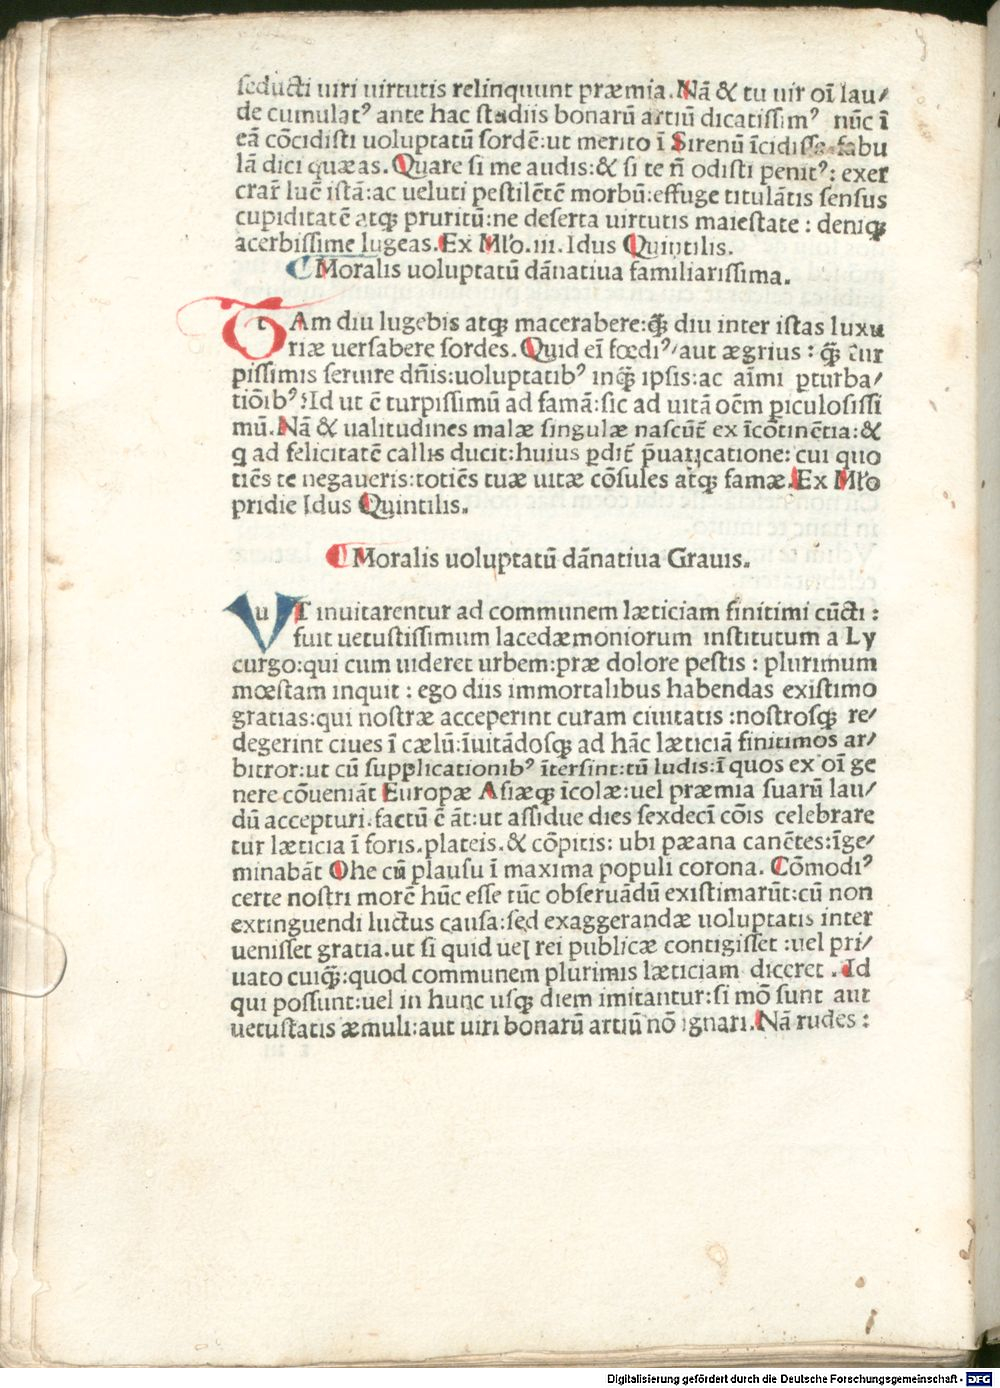 seducti uiri uirtutis relinquunt præmia. Nā & tu uir oī lau/
de cumulatꝰ ante hac studiis bonarū artiū dicatissimꝰ nūc ī
eā cōcidisti uoluptatū sordē: ut merito ī Sirenū īcidisse fabu
lā dici quæas. Quare si me audis: & si te n̄ odisti penitꝰ: exer
crar̄ lucē istā: ac ueluti pestilētē morbū: effuge titulātis sensus
cupiditatē atqꝫ pruritū: ne deserta uirtutis maiestate: deniqꝫ
acerbissime lugeas. Ex Mlo. iii. Idus Quintilis.
Moralis uoluptatū dānatiua familiarissima.
tAm diu lugebis atqꝫ macerabere: qꝫ̄ diu inter istas luxu
riæ uersabere sordes. Quid eī fœdiꝰ/ aut ægrius: qꝫ̄ tur
pissimis seruire dn̄is: uoluptatibꝰ inqꝫ̄ ipsis: ac aīmi ꝑturba/
tiōibꝰ? Id ut ē turpissimū ad famā: sic ad uitā oēm ꝑiculosissi
mū. Nā & ualitudines malæ singulæ nascūt̄ ex īcōtinētia: &
q ad felicitatē callis ducit: huius ꝑdit̄ p̄uaricatione: cui quo
tiēs te negaueris: totiēs tuæ uitæ cōsules atqꝫ famæ. Ex Mlo
pridie Idus Quintilis.
Moralis uoluptatū dānatiua Grauis.
uT inuitarentur ad communem læticiam finitimi cūcti:
fuit uetustissimum lacedæmoniorum institutum a Ly
curgo: qui cum uideret urbem: præ dolore pestis: plurimum
mœstam inquit: ego diis immortalibus habendas existimo
gratias: qui nostræ acceperint curam ciuitatis: nostrosqꝫ re/
degerint ciues ī cælū: īuitādosqꝫ ad hāc læticiā finitimos ar/
bitror: ut cū supplicationibꝰ ītersint: tū ludis: ī quos ex oī ge
nere cōueniāt Europæ Asiæqꝫ īcolæ: uel præmia suarū lau/
dū accepturi. factū ē āt: ut assidue dies sexdecī cōis celebrare
tur læticia ī foris. plateis. & cōpitis: ubi pæana canētes: īge/
minabāt Ohe cū plausu ī maxima populi corona. Cōmodiꝰ
certe nostri morē hūc esse tūc obseruādū existimarūt: cū non
extinguendi luctus causa: sed exaggerandæ uoluptatis inter
uenisset gratia. ut si quid uel rei publicæ contigisset: uel pri/
uato cuiqꝫ̄: quod communem plurimis læticiam diceret. Id
qui possunt: uel in hunc usqꝫ diem imitantur: si mō sunt aut
uetustatis æmuli: aut uiri bonarū artiū nō ignari. Nā rudes:
Digitalisierung gefördert durch die Deutsche Forschungsgemeinschaft - DFG